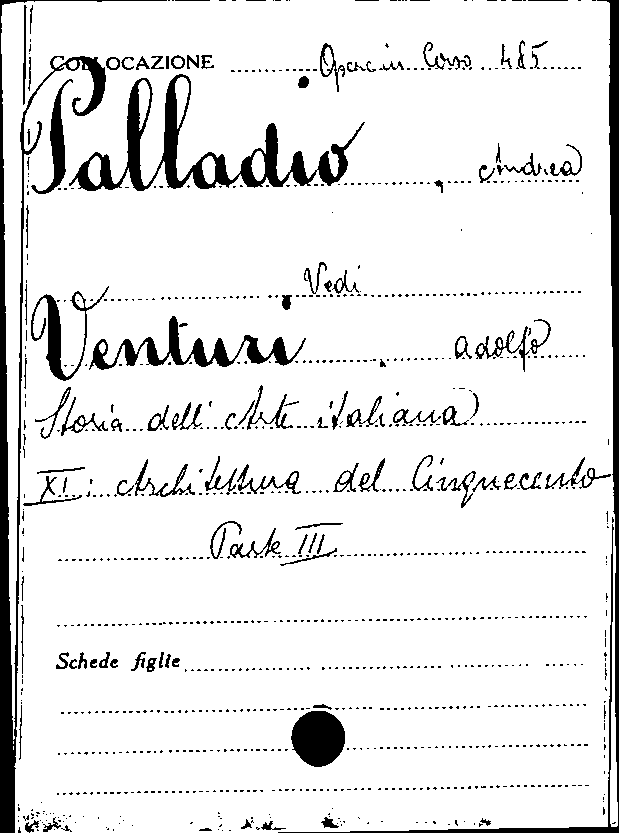 COLLOCAZIONE Opere in Corso 485
Palladio, Andrea
Vedi
Venturi, Adolfo
Storia dell' Arte italiana
XI: Architettura del Cinquecento
Parte III
Schede figlie